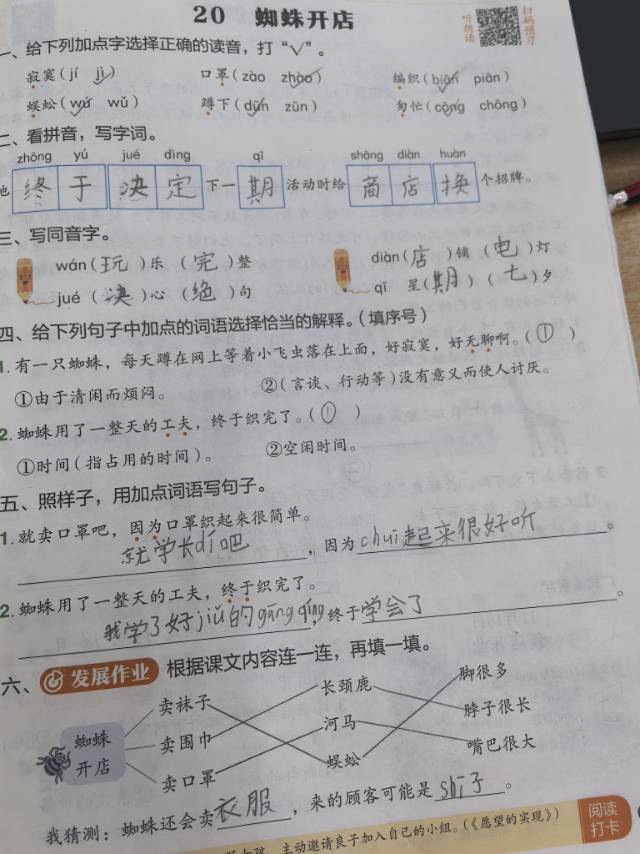 20 蜘蛛开店
听朗读
扫码预习
一、给下列加点字选择正确的读音，打“√”。
寂寞(jí jì√) 口罩(zào zhào√) 编织(biān√ piān)
蜈蚣(wú√ wǔ) 蹲下(dūn√ zūn) 匆忙(cōng√ chōng)
二、看拼音，写字词。
zhōng yú jué dìng qī shāng diàn huàn
他 终 于 决 定 下一 期 活动时给 商 店 换 个招牌。
三、写同音字。
wán(玩)乐 (完)整 diàn(店)铺 (电)灯
jué (决)心 (绝)句 qī 星(期) (七)夕
四、给下列句子中加点的词语选择恰当的解释。(填序号)
1. 有一只蜘蛛，每天蹲在网上等着小飞虫落在上面，好寂寞，好无聊啊。(①)
①由于清闲而烦闷。 ②(言谈、行动等)没有意义而使人讨厌。
2. 蜘蛛用了一整天的工夫，终于织完了。(①)
①时间(指占用的时间)。 ②空闲时间。
五、照样子，用加点词语写句子。
1. 就卖口罩吧，因为口罩织起来很简单。
就学长dí吧，因为chuī起来很好听。
2. 蜘蛛用了一整天的工夫，终于织完了。
我学了好jiǔ的gāng qíng，终于学会了。
六、发展作业 根据课文内容连一连，再填一填。
卖袜子 长颈鹿 脚很多
蜘蛛开店 卖围巾 河马 脖子很长
卖口罩 蜈蚣 嘴巴很大
我猜测：蜘蛛还会卖衣服，来的顾客可能是shī子。
主动邀请良子加入自己的小组。(《愿望的实现》)
阅读打卡